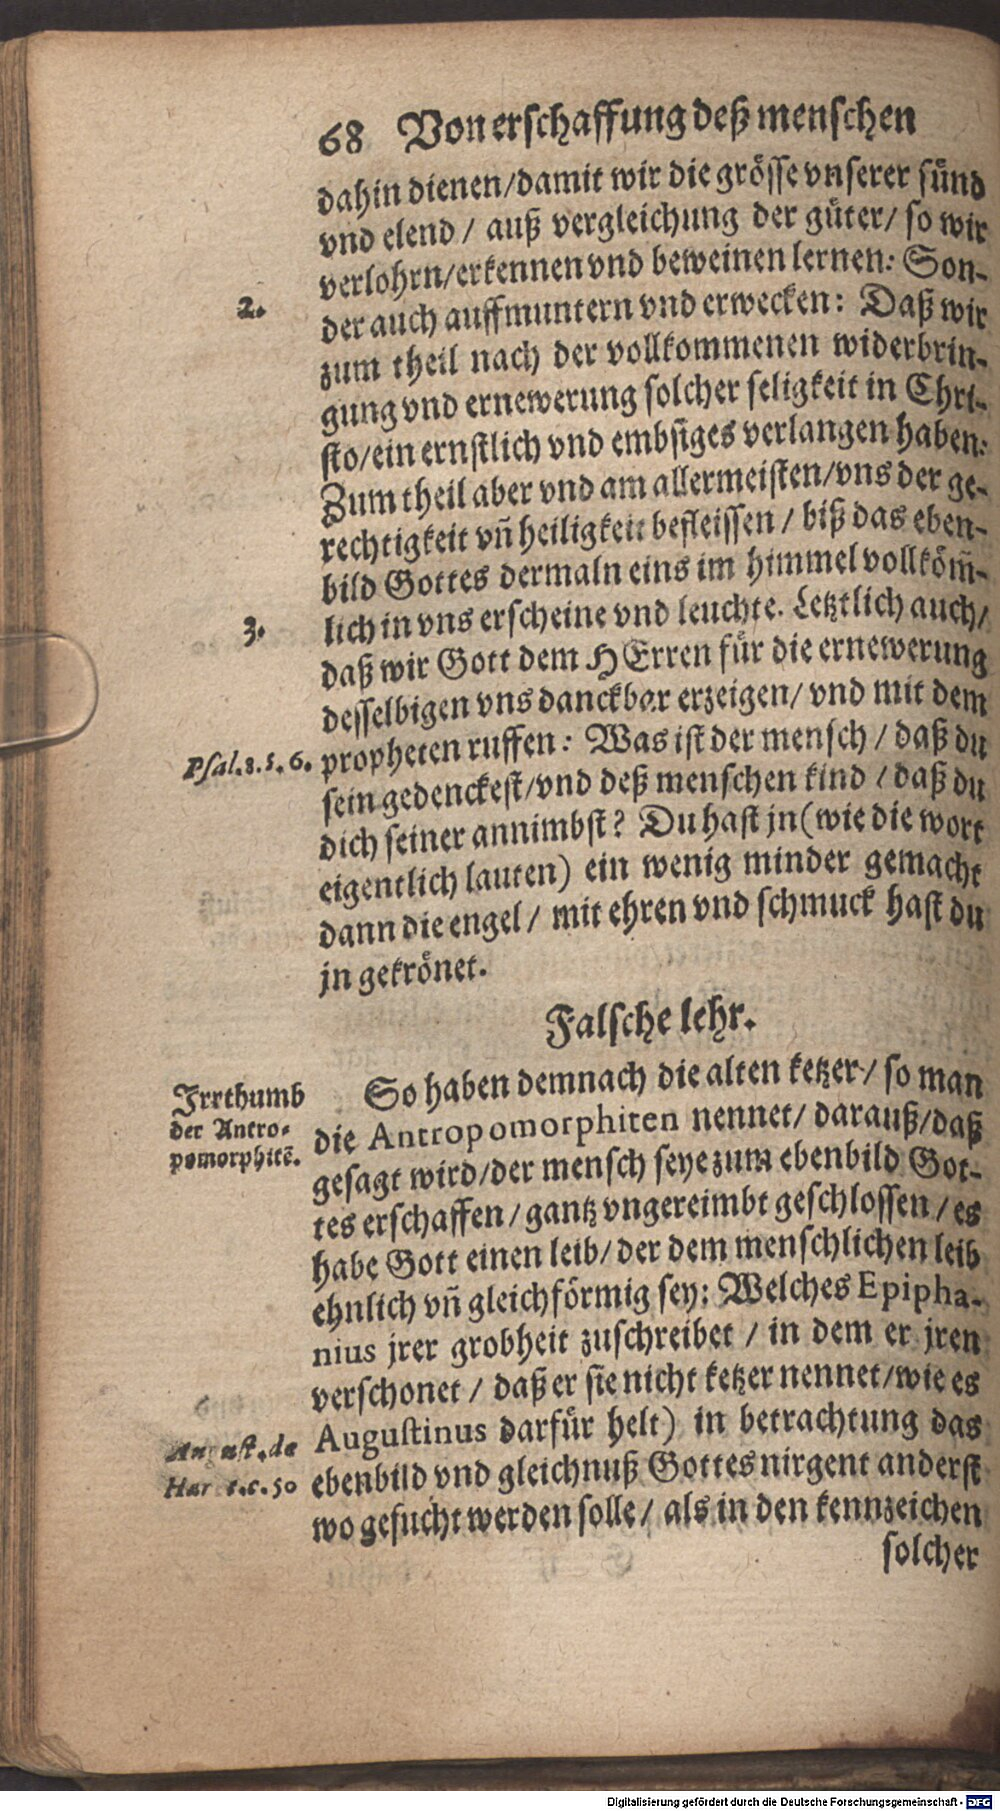 68 Von erschaffung deß menschen
dahin dienen/damit wir die grösse vnserer sünd
vnd elend / auß vergleichung der güter/ so wir
verlohrn/erkennen vnd beweinen lernen: Son-
2.
der auch auffmuntern vnd erwecken: Daß wir
zum theil nach der vollkommenen widerbrin-
gung vnd ernewerung solcher seligkeit in Chri-
sto/ein ernstlich vnd embsiges verlangen haben:
Zum theil aber vnd am allermeisten/vns der ge-
rechtigkeit vñ heiligkeit befleissen / biß das eben-
bild Gottes dermaln eins im himmel vollköm̃-
3.
lich in vns erscheine vnd leuchte. Letztlich auch/
daß wir Gott dem HErren für die ernewerung
desselbigen vns danckbar erzeigen/ vnd mit dem
Psal.8.5.6.
propheten ruffen: Was ist der mensch / daß du
sein gedenckest/vnd deß menschen kind / daß du
dich seiner annimbst? Du hast jn (wie die wort
eigentlich lauten) ein wenig minder gemacht
dann die engel / mit ehren vnd schmuck hast du
jn gekrönet.
Falsche lehr.
Irrthumb
der Antro-
pomorphitẽ.
So haben demnach die alten ketzer / so man
die Antropomorphiten nennet/ darauß/daß
gesagt wird/der mensch seye zum ebenbild Got-
tes erschaffen / gantz vngereimbt geschlossen / es
habe Gott einen leib/ der dem menschlichen leib
ehnlich vñ gleichförmig sey: Welches Epipha-
nius jrer grobheit zuschreibet / in dem er jren
verschonet / daß er sie nicht ketzer nennet/wie es
August.de
Har c.50
Augustinus darfür helt) in betrachtung das
ebenbild vnd gleichnuß Gottes nirgent anderst
wo gesucht werden solle/ als in den kennzeichen
solcher
Digitalisierung gefördert durch die Deutsche Forschungsgemeinschaft - DFG